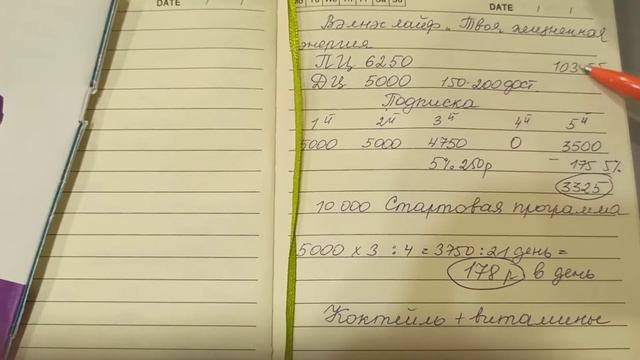 DATE
DATE / /
Mo Tu We Th Fr Sa Su
Вэлнэс лайф. Твоя жизненная
энергия
ПЦ 6250
ДЦ 5000 150-200 дост.
Подписка
1й 2й 3й 4й 5й
5000 5000 4750 0 3500
5% 250р - 175 5%
3325
10 000 Стартовая программа
5000 х 3 : 4 = 3750 : 21 день =
178 р в день
Коктейль + витамины